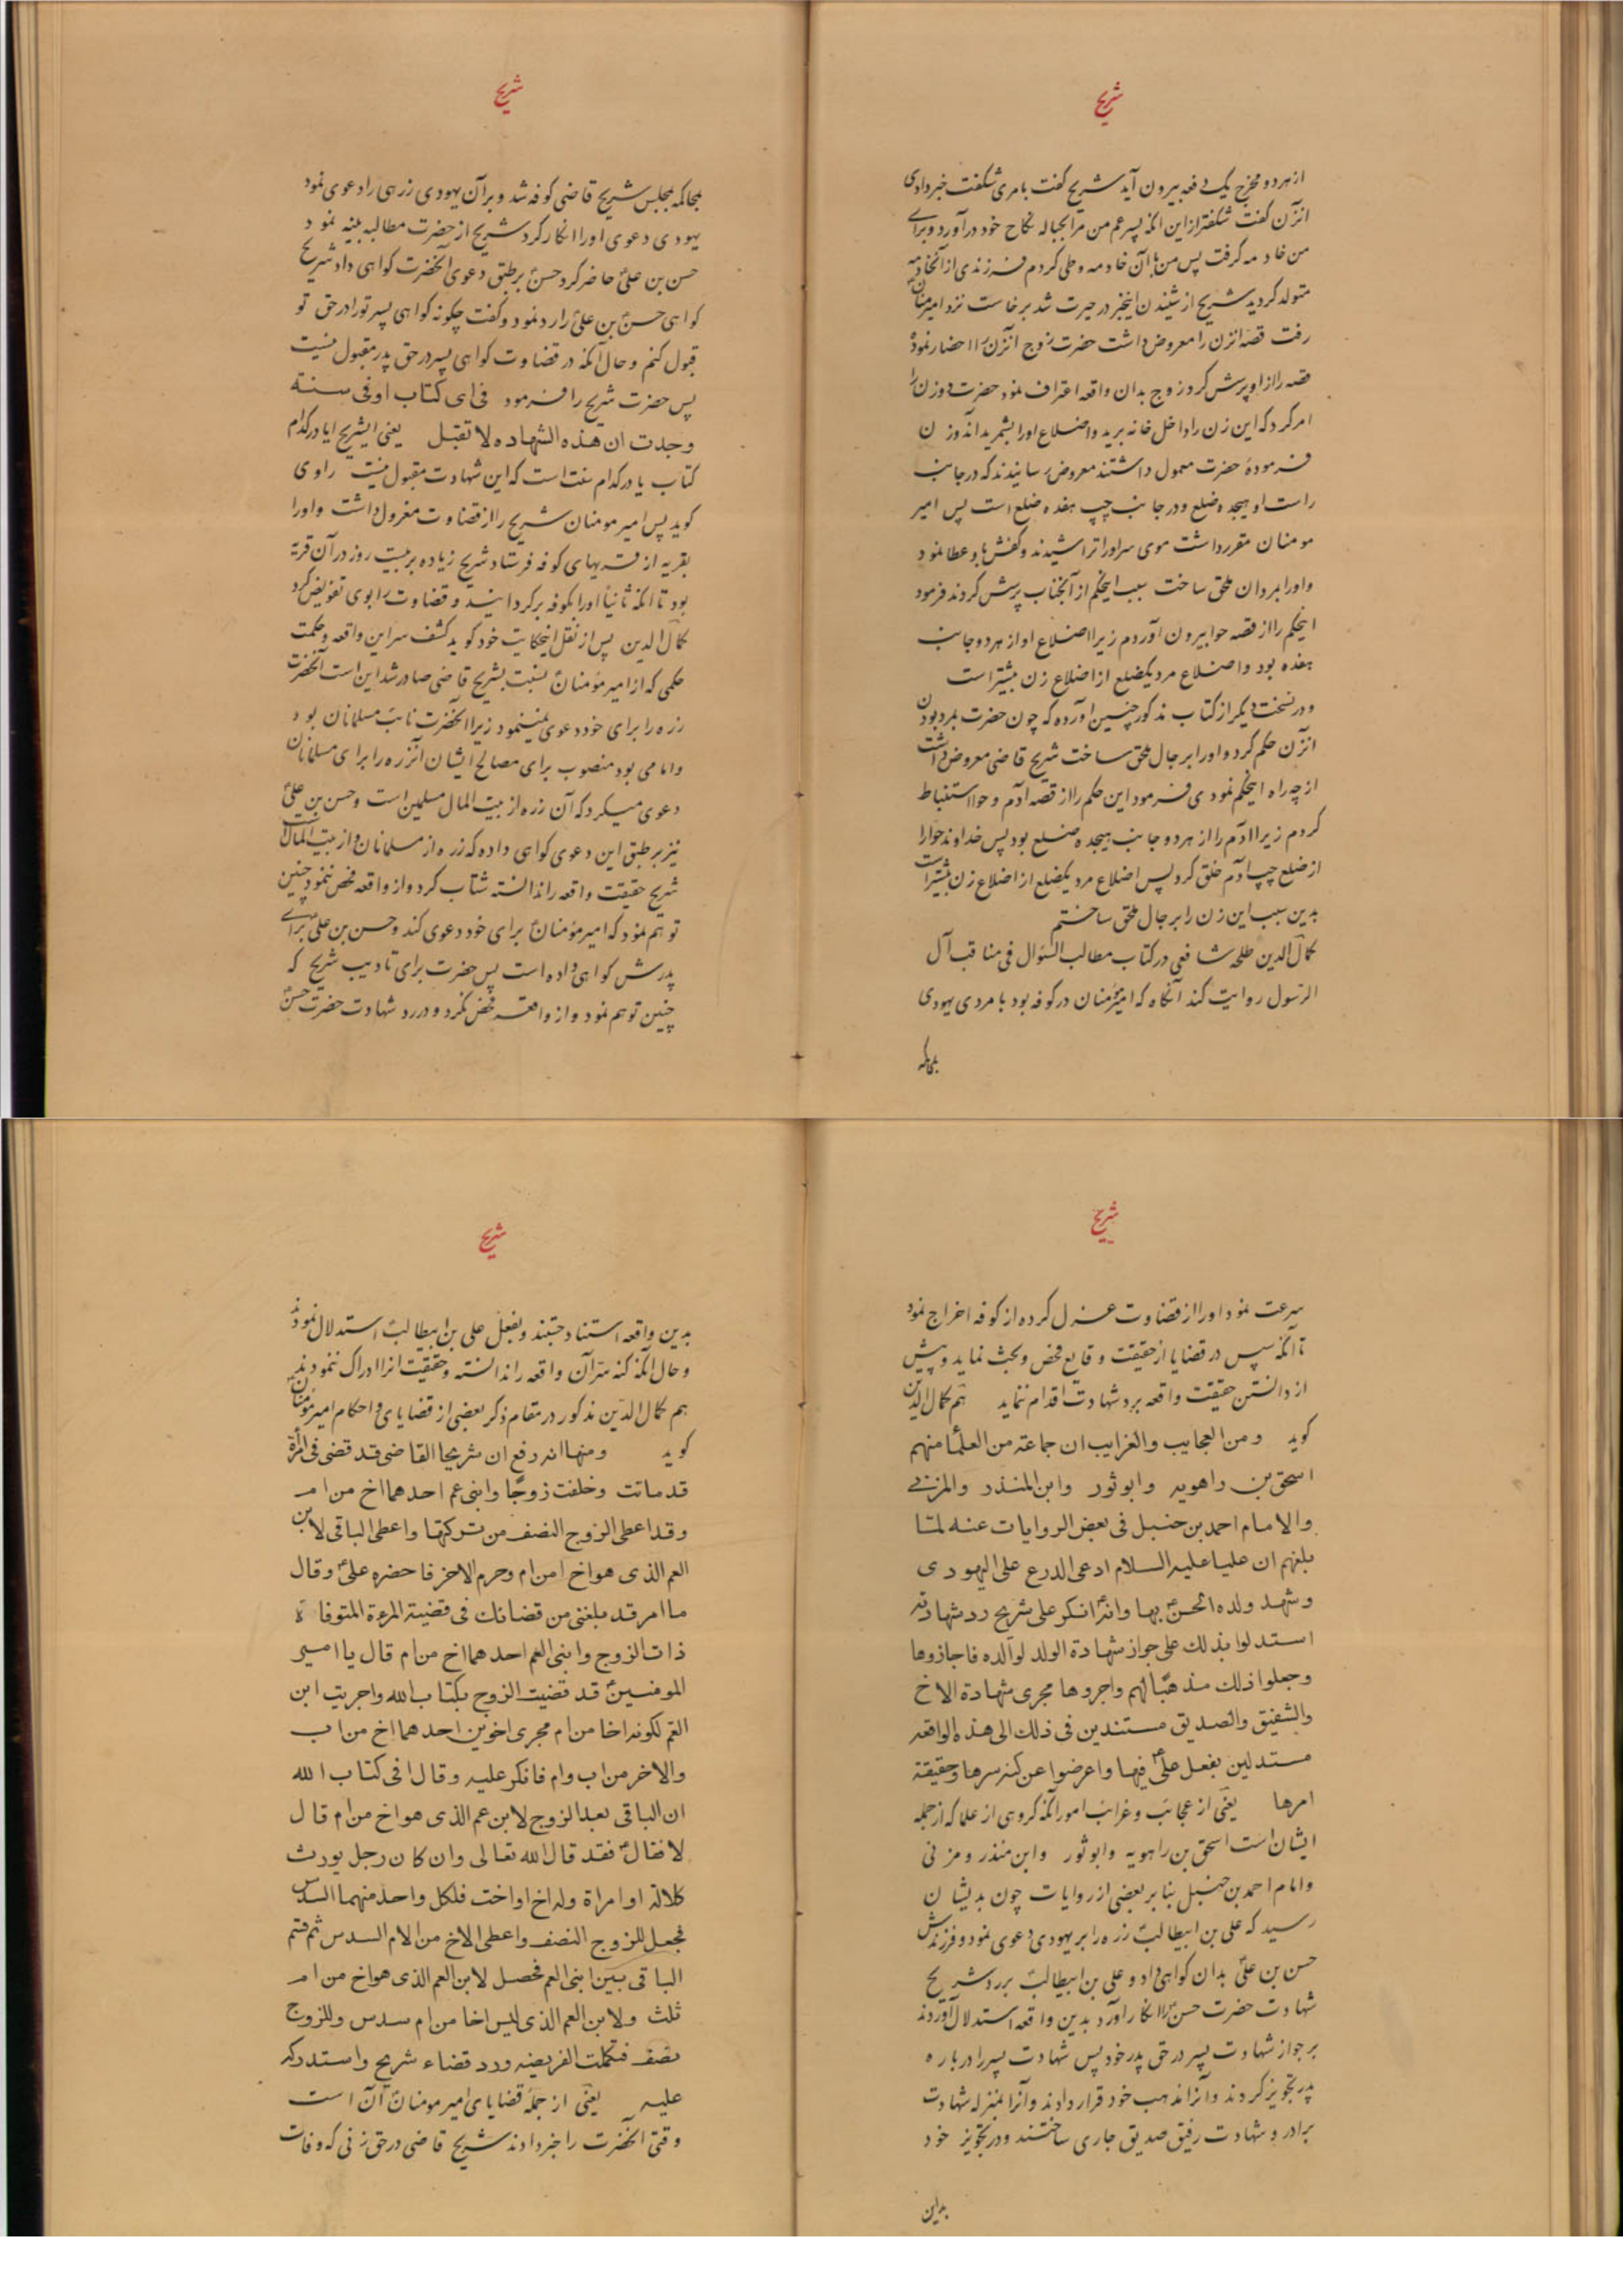 شریح
از هر دو مخرج یک دفعه بیرون آید شریح گفت بامری شگفت خبر دادی
انزن گفت شگفتر از این انکه پسر عم من مرا بحباله نکاح خود در آورد و برای
من خادمه گرفت پس من با آن خادمه وطی کردم فرزندی از آنخادمه
متولد گردید شریح از شنیدن اینخبر در حیرت شد برخاست نزد امیر مؤمنان
رفت قصه انزن را معروض داشت حضرت زوج انزن را احضار نموده
قصه را از او پرسش کرد زوج بدان واقعه اعتراف نمود حضرت دو زن را
امر کرد که این زن را داخل خانه برید و اضلاع او را بشمرید آندو زن
فرموده حضرت معمول داشتند معروض رسانیدند که در جانب
راست او هیجده ضلع و در جانب چپ هفده ضلع است پس امیر
مومنان مقرر داشت موی سر او را تراشیدند و کفش باو عطا نمود
و او را بمردان ملحق ساخت سبب اینحکم از آنجناب پرسش کردند فرمود
اینحکم را از قصه حوا بیرون آوردم زیرا اضلاع او از هر دو جانب
هفده بود و اضلاع مرد یکضلع از اضلاع زن بیشتر است
و در نسخت دیگر از کتاب مذکور چنین آورده که چون حضرت بمرد بودن
انزن حکم کرد و او را برجال ملحق ساخت شریح قاضی معروض داشت
از چه راه اینحکم نمودی فرمود این حکم را از قصه آدم و حوا استنباط
کردم زیرا آدم را از هر دو جانب هیجده ضلع بود پس خداوند حوا را
از ضلع چپ آدم خلق کرد پس اضلاع مرد یکضلع از اضلاع زن بیشتر است
بدین سبب این زن را برجال ملحق ساختم
کمال الدین طلحه شافعی در کتاب مطالب السؤال فی مناقب آل
الرسول روایت کند آنگاه که امیر مؤمنان در کوفه بود با مردی یهودی
بمحاکمه
شریح
بمحاکمه بمجلس شریح قاضی کوفه شد و بر آن یهودی زرهی را دعوی نمود
یهودی دعوی او را انکار کرد شریح از حضرت مطالبه بینه نمود
حسن بن علی حاضر کرد حسن بر طبق دعوی آنحضرت گواهی داد شریح
گواهی حسن بن علی را رد نمود و گفت چگونه گواهی پسر تو را در حق تو
قبول کنم و حال آنکه در قضاوت گواهی پسر در حق پدر مقبول نیست
پس حضرت شریح را فرمود فی ای کتاب او فی سنته
وجدت ان هذه الشهاده لا تقبل یعنی ایشریح ایا در کدام
کتاب یا در کدام سنت است که این شهادت مقبول نیست راوی
گوید پس امیر مومنان شریح را از قضاوت معزول داشت و او را
بقریه از قریهای کوفه فرستاد شریح زیاده بر بیست روز در آن قریة
بود تا انکه ثانیاً او را بکوفه برگردانید و قضاوت را بوی تفویض کرد
کمال الدین پس از نقل اینحکایت خود گوید کشف سر این واقعه و حکمت
حکمی که از امیر مؤمنان نسبت بشریح قاضی صادر شد این است آنحضرت
زره را برای خود دعوی نمینمود زیرا آنحضرت نائب مسلمانان بود
و امامی بود منصوب برای مصالح ایشان آنزره را برای مسلمانان
دعوی میکرد که آن زره از بیت المال مسلمین است و حسن بن علی
نیز بر طبق این دعوی گواهی داده که زره از مسلمانان و از بیت المال است
شریح حقیقت واقعه را ندانسته شتاب کرد و از واقعه فحص ننمود چنین
توهم نمود که امیر مؤمنان برای خود دعوی کند و حسن بن علی برای
پدرش گواهی داده است پس حضرت برای تادیب شریح که
چنین توهم نمود و از واقعه فحص نکرد و در رد شهادت حضرت حسن
شریح
سرعت نمود او را از قضاوت عزل کرده از کوفه اخراج نمود
تا آنکه سپس در قضایا از حقیقت وقایع فحص و بحث نماید و پیش
از دانستن حقیقت واقعه برد شهادت اقدام ننماید هم کمال الدین
گوید ومن العجایب والغرایب ان جماعته من العلمأ منهم
اسحق بن راهویه وابوثور وابن المنذر والمزنی
والامام احمد بن حنبل فی بعض الروایات عنه لمّا
بلغهم ان علیا علیه السلام ادعی الدرع علی الیهودی
وشهد ولده الحسن بها وانّه انکر علی شریح رد شهادته
استدلوا بذلک علی جواز شهادة الولد لوالده فاجازوها
وجعلوا ذلک مذهبًا لهم واجروها مجری شهادة الاخ
والشفیق والصدیق مستندین فی ذلک الی هذه الواقعه
مستدلین بفعل علی فیها واعرضوا عن کنه سرها وحقیقة
امرها یعنی از عجائب و غرائب امور آنکه گروهی از علما که از جمله
ایشان است اسحق بن راهویه وابو ثور وابن منذر و مزنی
و امام احمد بن حنبل بنا بر بعضی از روایات چون بدیشان
رسید که علی بن ابیطالب زره را بر یهودی دعوی نمود و فرزندش
حسن بن علی بدان گواهی داد و علی بن ابیطالب برد شریح
شهادت حضرت حسن را انکار آورد بدین واقعه استدلال آوردند
بر جواز شهادت پسر در حق پدر خود پس شهادت پسر را درباره
پدر تجویز کردند و آنرا مذهب خود قرار دادند و آنرا بمنزله شهادت
برادر و شهادت رفیق صدیق جاری ساختند و در تجویز خود
بدین
شریح
بدین واقعه استناد جستند و بفعل علی بن ابیطالب استدلال نمودند
و حال آنکه کنه سرّ آن واقعه را ندانسته و حقیقت انرا ادراک ننمودند
هم کمال الدین مذکور در مقام ذکر بعضی از قضایای و احکام امیر مؤمنان
گوید ومنها انه رفع ان شریحا القاضی قد قضی فی امرأة
قد ماتت وخلفت زوجًا وابنی عم احدهما اخ من ام
وقد اعطی الزوج النصف من ترکتها واعطی الباقی لابن
العم الذی هو اخ من ام وحرم الاخر فاحضره علی وقال
ما امر قد بلغنی من قضائک فی قضیته المرءة المتوفاة
ذات الزوج وابنی العم احدهما اخ من ام قال یا امیر
المومنین قد قضیت الزوج بکتاب الله واجریت ابن
العم لکونه اخا من ام مجری اخوین احدهما اخ من اب
والاخر من اب وام فانکر علیه وقال افی کتاب الله
ان الباقی بعد الزوج لابن عم الذی هو اخ من ام قال
لا فقال فقد قال الله تعالی وان کان رجل یورث
کلالة او امراة وله اخ او اخت فلکل واحد منهما السدس
فجعل للزوج النصف واعطی الاخ من الام السدس ثم قسم
الباقی بین ابنی العم فحصل لابن العم الذی هو اخ من ام
ثلث ولابن العم الذی لیس اخا من ام سدس وللزوج
نصف فتکملت الفریضه ورد قضاء شریح واستدرکه
علیه یعنی از جمله قضایای امیر مومنان آن است
وقتی آنحضرت را خبر دادند شریح قاضی در حق زنی که وفات